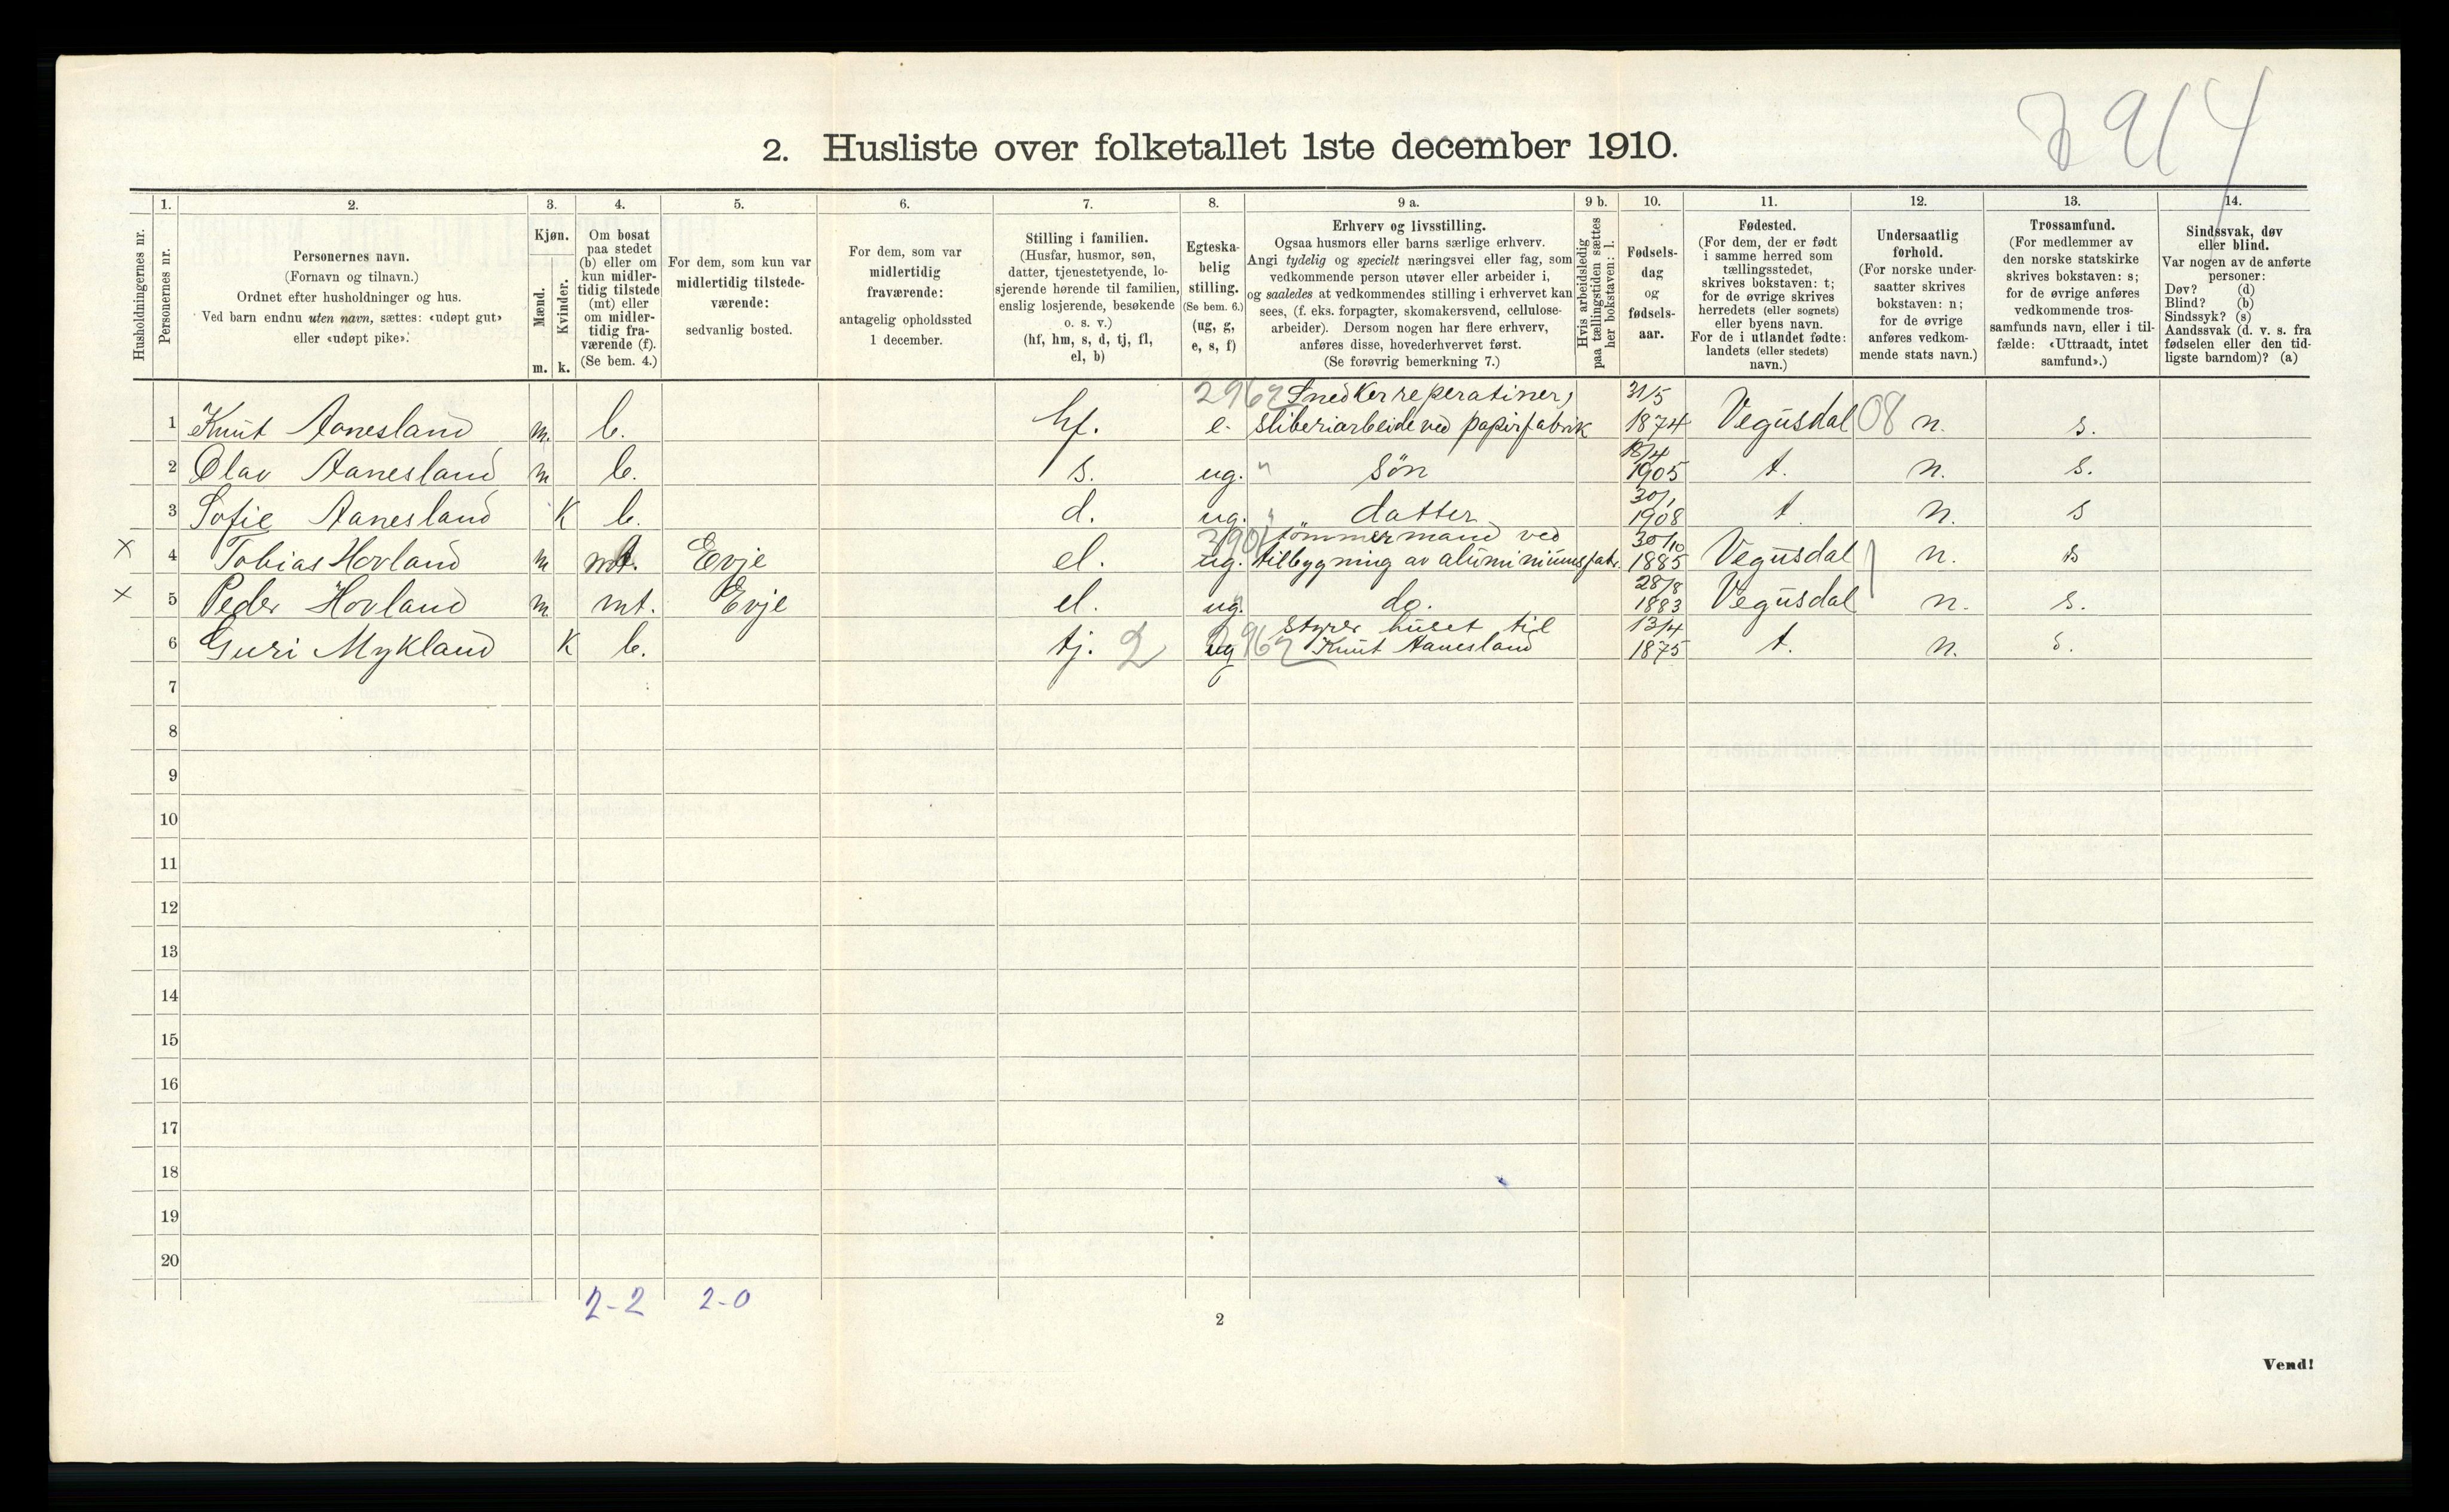 8914
2. Husliste over folketallet 1ste december 1910.
Husholdningernes nr.
1.
Personernes nr.
2.
Personernes navn.
(Fornavn og tilnavn.)
Ordnet efter husholdninger og hus.
Ved barn endnu uten navn, sættes: «udøpt gut»
eller «udøpt pike».
3.
Kjøn.
Mænd.
m.
Kvinder.
k.
4.
Om bosat
paa stedet
(b) eller om
kun midler-
tidig tilstede
(mt) eller
om midler-
tidig fra-
værende (f).
(Se bem. 4.)
5.
For dem, som kun var
midlertidig tilstede-
værende:
sedvanlig bosted.
6.
For dem, som var
midlertidig
fraværende:
antagelig opholdssted
1 december.
7.
Stilling i familien.
(Husfar, husmor, søn,
datter, tjenestetyende, lo-
sjerende hørende til familien,
enslig losjerende, besøkende
o. s. v.)
(hf, hm, s, d, tj, fl,
el, b)
8.
Egteska-
belig
stilling.
(Se bem. 6.)
(ug, g,
e, s, f)
9 a.
Erhverv og livsstilling.
Ogsaa husmors eller barns særlige erhverv.
Angi tydelig og specielt næringsvei eller fag, som
vedkommende person utøver eller arbeider i,
og saaledes at vedkommendes stilling i erhvervet kan
sees, (f. eks. forpagter, skomakersvend, cellulose-
arbeider). Dersom nogen har flere erhverv,
anføres disse, hovederhvervet først.
(Se forøvrig bemerkning 7.)
9 b.
Hvis arbeidsledig
paa tællingstiden sættes
her bokstaven: l.
10.
Fødsels-
dag
og
fødsels-
aar.
11.
Fødested.
(For dem, der er født
i samme herred som
tællingsstedet,
skrives bokstaven: t;
for de øvrige skrives
herredets (eller sognets)
eller byens navn.
For de i utlandet fødte:
landets (eller stedets)
navn.)
12.
Undersaatlig
forhold.
(For norske under-
saatter skrives
bokstaven: n;
for de øvrige
anføres vedkom-
mende stats navn.)
13.
Trossamfund.
(For medlemmer av
den norske statskirke
skrives bokstaven: s;
for de øvrige anføres
vedkommende tros-
samfunds navn, eller i til-
fælde: «Uttraadt, intet
samfund».)
14.
Sindssvak, døv
eller blind.
Var nogen av de anførte
personer:
Døv? (d)
Blind? (b)
Sindssyk? (s)
Aandssvak (d. v. s. fra
fødselen eller den tid-
ligste barndom)? (a)
2962 Snedkerreperatiner, 31/5
1 Knut Aanesland m. b. hf. e. sliberiarbeide ved papirfabrik 1874 Vegusdal 08 n. s.
18/4
2 Olav Aanesland m b. s. ug. " søn 1905 t. n. s.
30/1
3 Sofie Aanesland K b. d. ug. " datter 1908 t n. s
3901 tømmermand ved 30/10
x 4 Tobias Hovland m mt. Evje el. ug. tilbygning av aluminiumsfabr. 1885 Vegusdal n. s
28/8
x 5 Peder Hovland m. mt. Evje el. ug. do. 1883 Vegusdal n. s.
styrer huset til 13/4
6 Guri Mykland K b. tj. 2 ug 2962 Knut Aanesland 1875 t. n. s.
7
8
9
10
11
12
13
14
15
16
17
18
19
20
2-2 2-0
2
Vend!